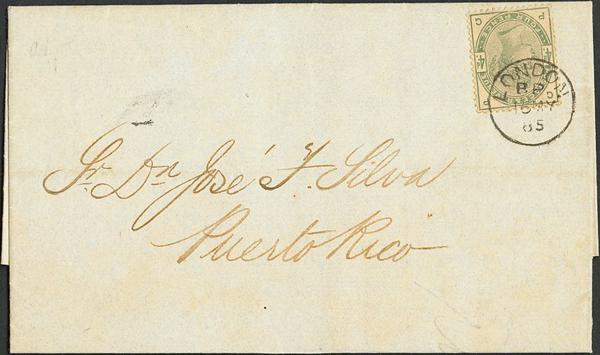 LONDON
P.P.
MY
85
Sr. Dn. José F. Silva
Puerto Rico